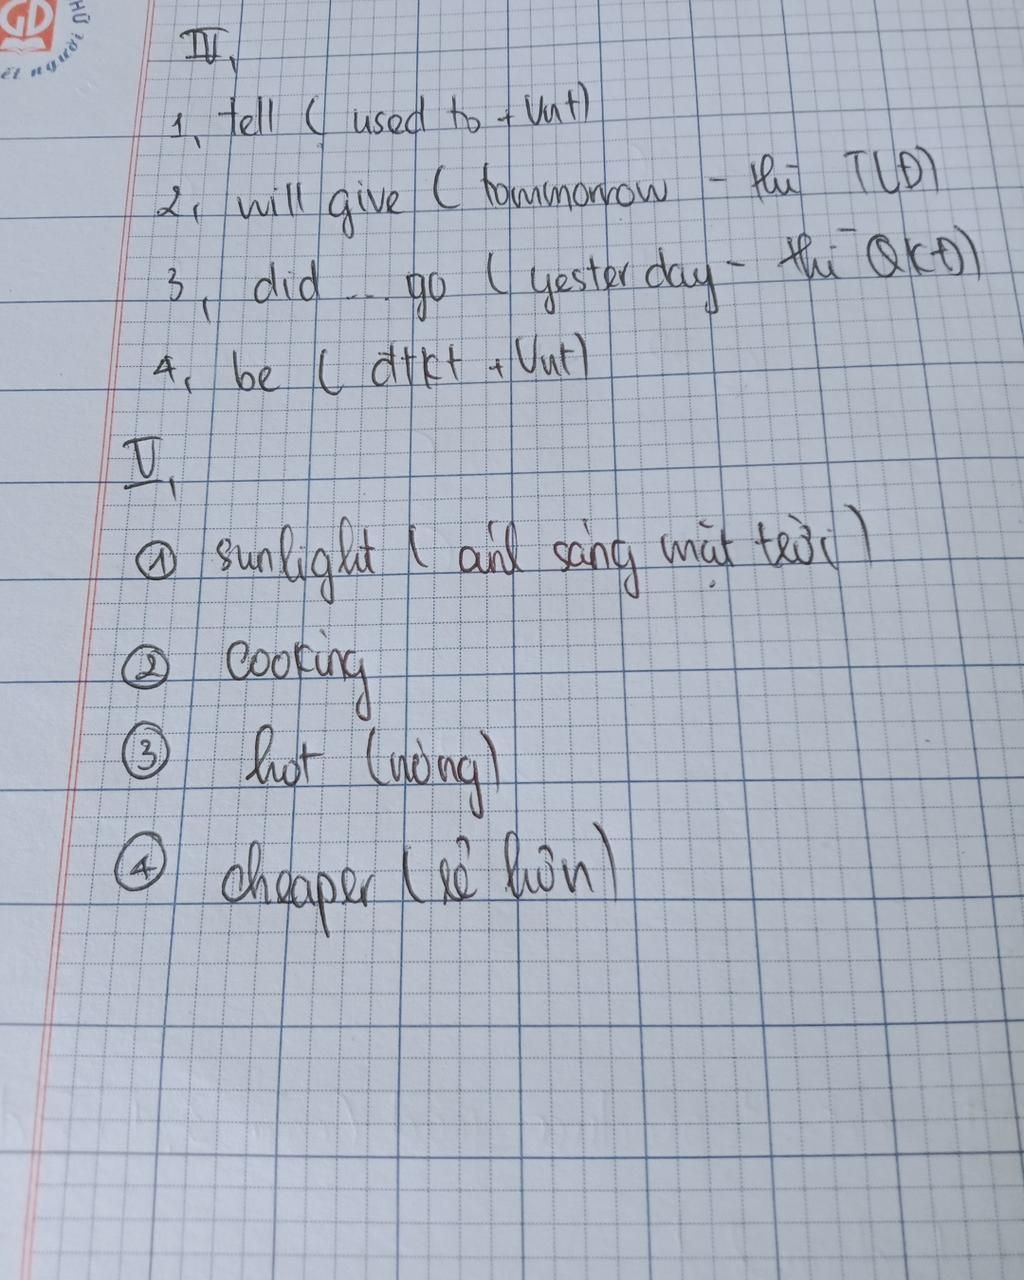 GD
ết người
HỮ
IV,
1, tell ( used to + Vnt)
2, will give ( tommorrow - thì TLĐ)
3, did ... go ( yesterday - thì QKĐ)
4, be ( dtkt + Vnt)
V,
① sunlight ( ánh sáng mặt trời )
② cooking
③ hot (nóng)
④ cheaper (rẻ hơn)